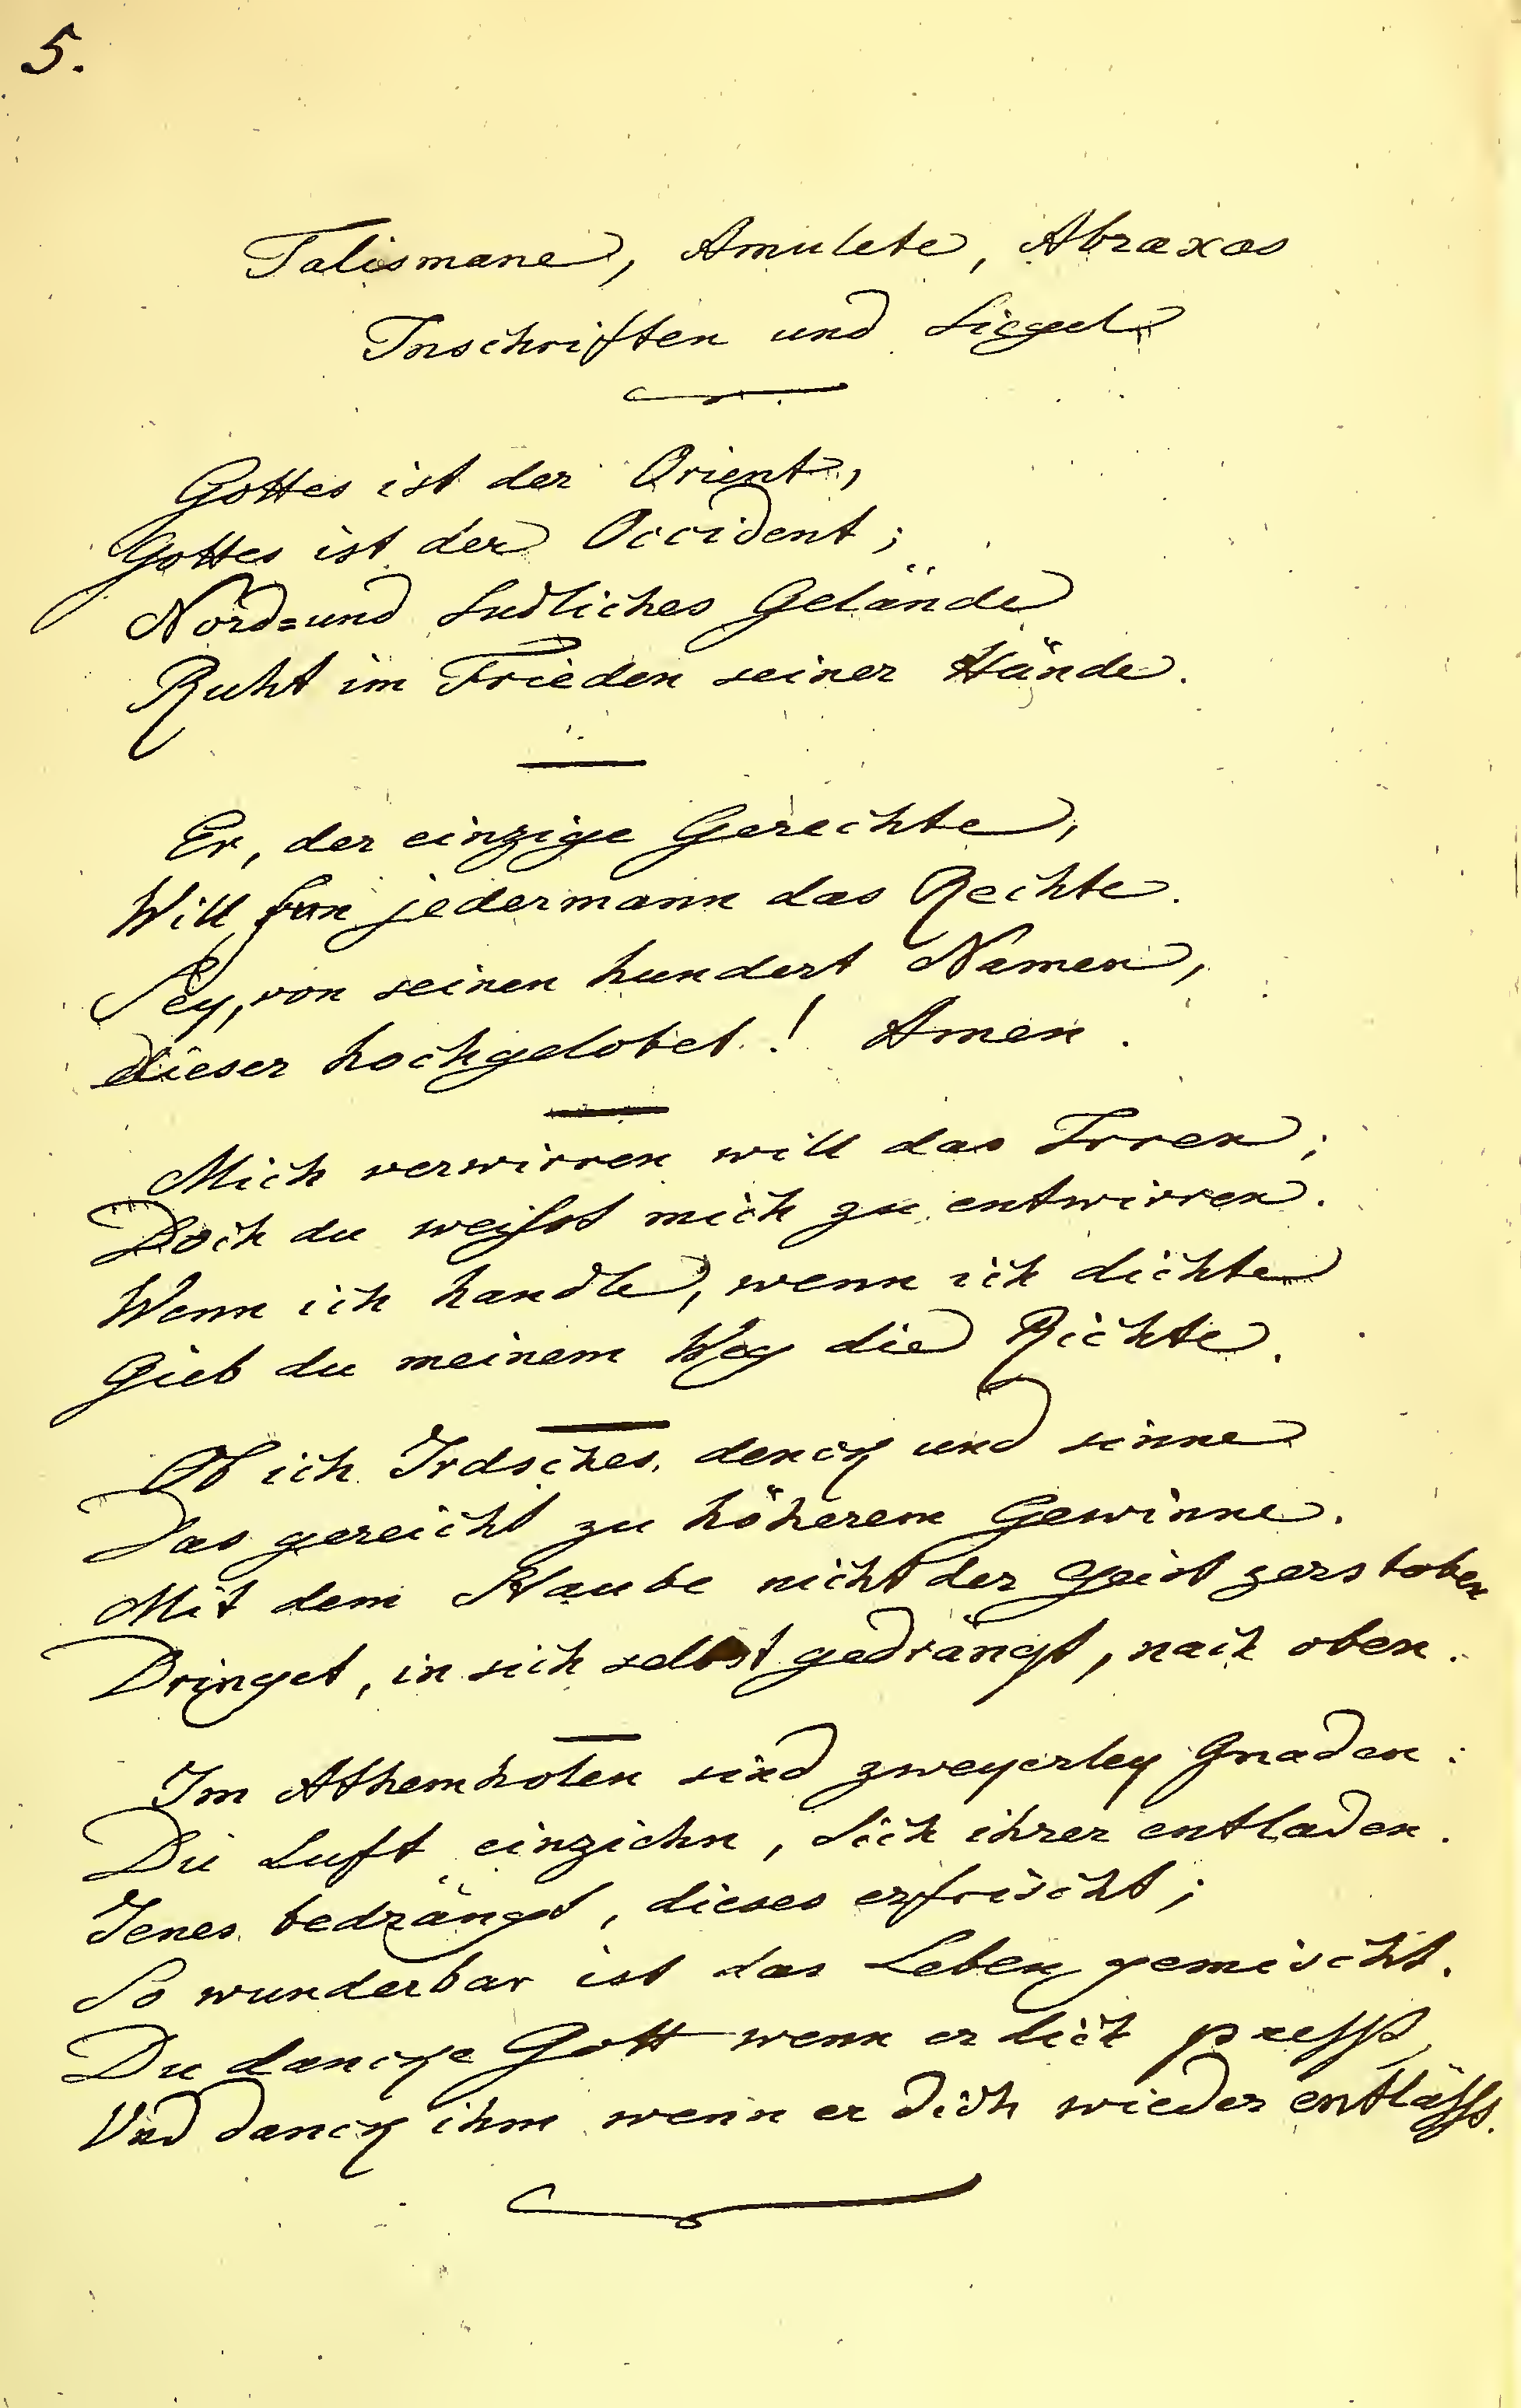 5.
Talismane, Amulete, Abraxas
Inschriften und Siegel
Gottes ist der Orient,
Gottes ist der Occident;
Nord=und Südliches Gelände
Ruht im Frieden seiner Hände.
Er, der einzige Gerechte,
Will für jedermann das Rechte.
Sey, von seinen hundert Namen,
dieser hochgelobet! Amen.
Mich verwirren will das Irren;
Doch du weisst mich zu entwirren.
Wenn ich handle, wenn ich dichte
Gieb du meinem Weg die Richte.
Ob ich Irdsches denck und sinne
Das gereicht zu höherem Gewinne.
Mit dem Staube nicht der Geist zerstoben
Dringet, in sich selbst gedrängt, nach oben.
Im Athemholen sind zweyerley Gnaden:
Die Luft einziehn, sich ihrer entladen.
Jenes bedrängt, dieses erfrischt;
So wunderbar ist das Leben gemischt.
Du dancke Gott wenn er dich presst,
Und danck ihm wenn er dich wieder entlässt.